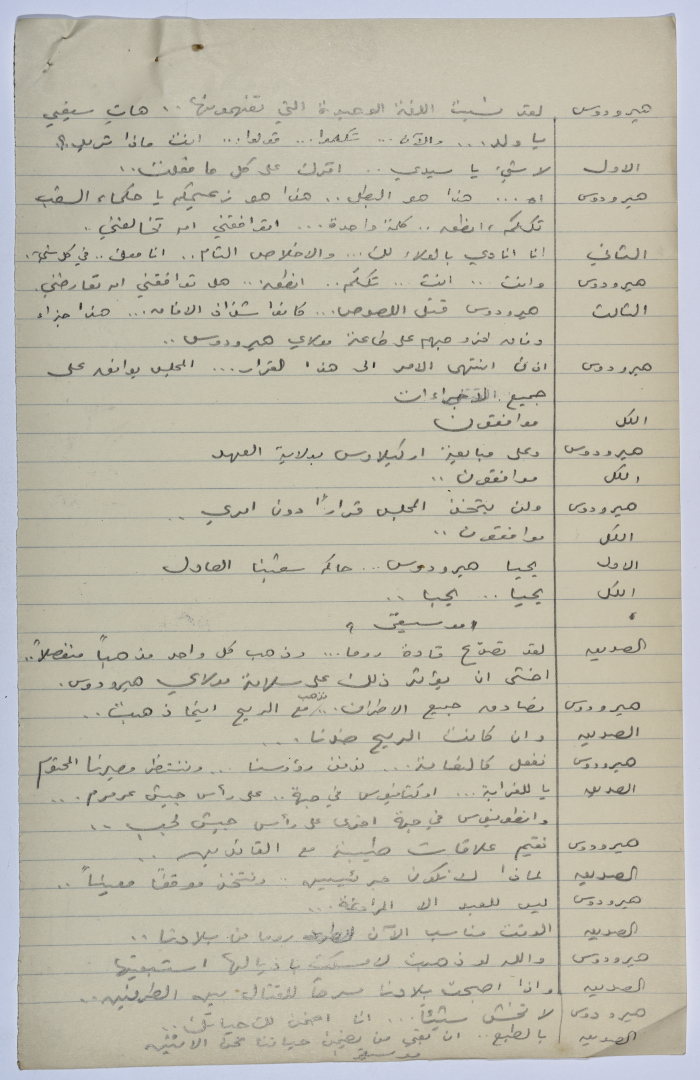 هيرودوس لقد نسيت اللغة الوحيدة التي تفهمونها .. هات سيفي
يا ولد ... والآن ... تكلموا ... قولوا ... انت ماذا تريد؟
الاول لا شيء يا سيدي .. اقرك على كل ما فعلت ..
هيرودوس اه ... هذا هو البطل .. هذا هو زعيمكم يا حكماء الشعب
تكلم، انطق .. كلمة واحدة ... اتوافقني ام تخالفني ..
الثاني انا انادي بالولاء لك ... والاخلاص التام .. انا معك .. في كل شيء.
هيرودوس وانت ... انت ... تكلم .. انطق .. هل توافقني ام تعارضني.
الثالث هيرودوس قتل اللصوص ... كانوا شذاذ الافاق ... هذا جزاء
وفاق لخروجهم على طاعة مولاي هيرودوس ..
هيرودوس اذن انتهى الامر الى هذا القرار ... المجلس يوافق على
جميع الاجراءات
الكل موافقون
هيرودوس وعلى مبايعة اركيلاوس بولاية العهد
الكل موافقون ..
هيرودوس ولن يتخذ المجلس قراراً دون امري ..
الكل موافقون ..
الاول يحيا هيرودوس ... حاكم شعبنا العادل
الكل يحيا .. يحيا ..
" موسيقى "
الصديق لقد تصدّع قادة روما ... وذهب كل واحد مذهباً منفصلاً ..
اخشى ان يؤثر ذلك على سلامة مولاي هيرودوس.
هيرودوس نصادق جميع الاطراف .. نذهب مع الريح اينما ذهبت ..
الصديق وان كانت الريح ضدنا ...
هيرودوس نفعل كالنعامة ... ندفن رؤوسنا ... وننتظر مصيرنا المحتوم
الصديق يا للغرابة ... اوكتافيوس في جهة .. على رأس جيش عرمرم ...
وانطونيوس في جهة اخرى على رأس جيش لجب ..
هيرودوس نقيم علاقات طيبة مع القائدين ..
الصديق لماذا لا نكون جريئين .. ونتخذ موقفاً معيناً ..
هيرودوس ليس للعبد الا المراوغة ...
الصديق الوقت مناسب الآن لطرد روما من بلادنا ..
هيرودوس والله لو ذهبت لامسكت باذيالها استبقيها
الصديق واذا اصبحت بلادنا مسرحاً للاقتتال بين الطرفين ..
هيرودوس لا تخش شيئاً ... انا اضمن لك حياتك ..
الصديق بالطبع .. ان بقي من يضمن حياتنا نحن الاثنين
موسيقى